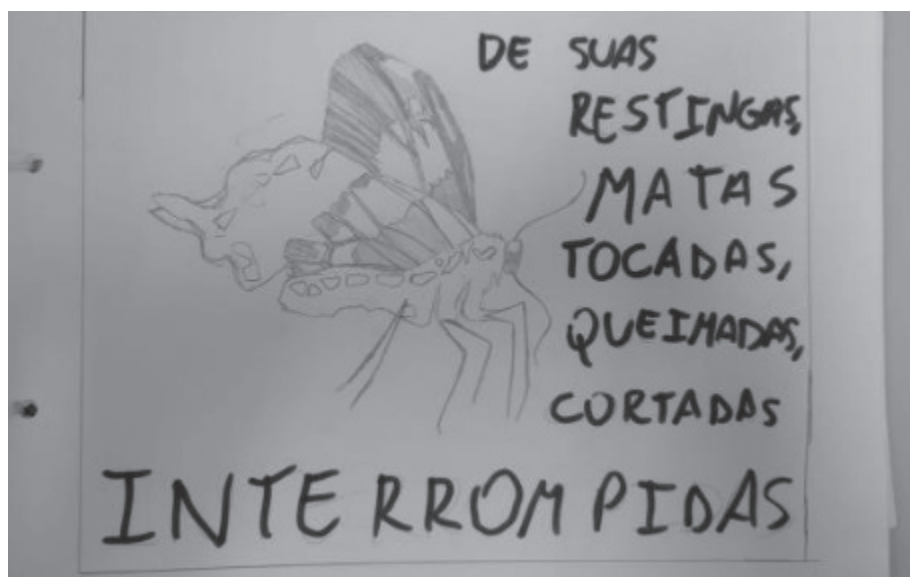 DE SUAS
RESTINGAS,
MATAS
TOCADAS,
QUEIMADAS,
CORTADAS
INTERROMPIDAS